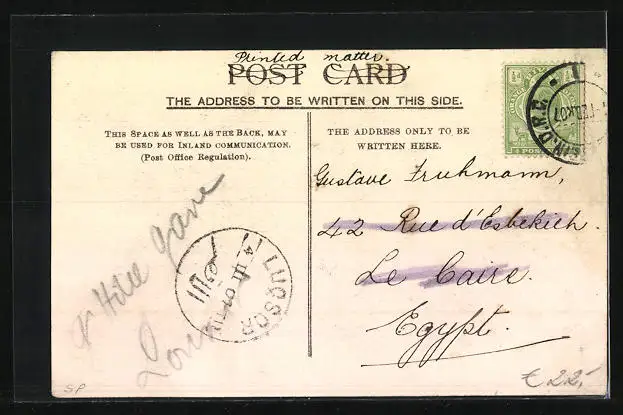 Printed matter.
POST CARD
THE ADDRESS TO BE WRITTEN ON THIS SIDE.
THIS SPACE AS WELL AS THE BACK, MAY
BE USED FOR INLAND COMMUNICATION.
(Post Office Regulation).
THE ADDRESS ONLY TO BE
WRITTEN HERE.
Gustave Fruhmann,
42 Rue d'Esbekieh.
Le Caire.
Egypt.
LUQSOR
4 III 07
€ 22,-
SP